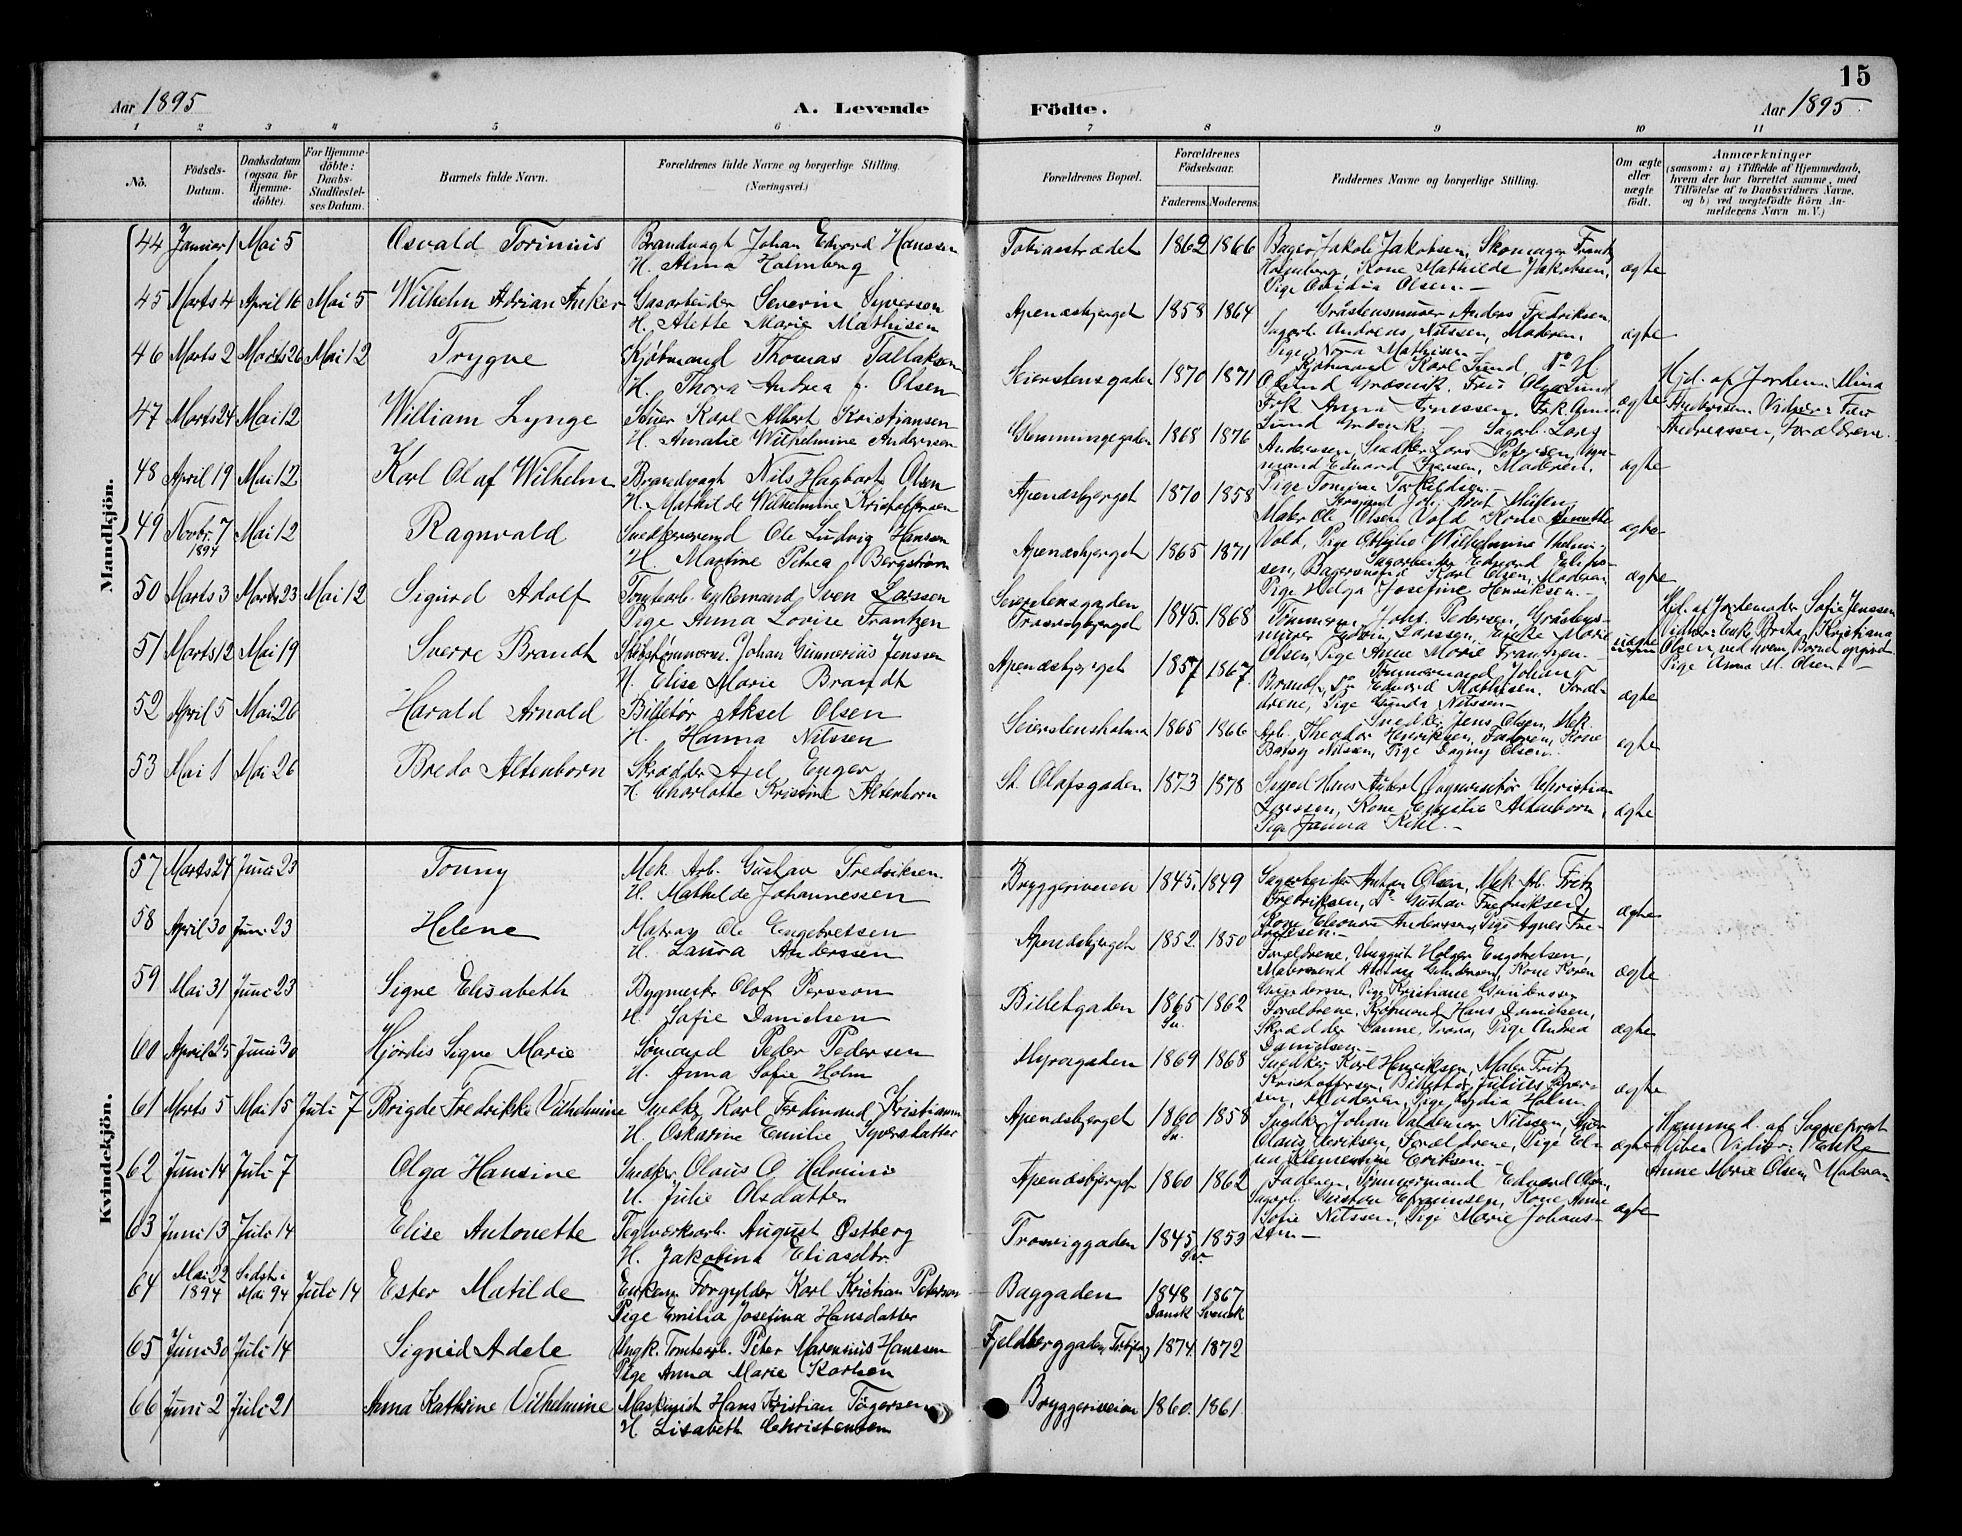 15
Aar 1895 A. Levende Födte. Aar 1895
1 2 3 4 5 6 7 8 9 10 11
No. Födsels-Datum. Daabsdatum (ogsaa för Hjemme-döbte). For Hjemme-döbte: Daabs-Stadfæstel-ses Datum. Barnets fulde Navn. Forældrenes fulde Navne og borgerlige Stilling. (Næringsvei.) Forældrenes Bopæl. Forældrenes Födselsaar. Faderens. Moderens. Faddernes Navne og borgerlige Stilling. Om ægte eller uægte födt. Anmærkninger
(saasom: a) i Tilfælde af Hjemmedaab, hvem der har forrettet samme, med Tilföielse af to Daabsvidners Navne, og b) ved uægtefödte Börn An-melderens Navn m. V.)
Mandkjön.
44 Januar 1 Mai 5 Osvald Torinius Brandvagt Johan Edvard Hanssen
H. Alma Holmberg
Tobiasstrædet 1862 1866 Bager Jakob Jakobsen, Skomager Frantz
Holmberg, Kone Mathilde Jakobsen,
Pige Olsen.— ægte
45 Marts 4 April 16 Mai 5 Wilhelm Adrian Anker Gasarbeider Severin Syversen
H. Alette Marie Mathisen
Apenæsbjerget 1858 1864 Gråstensmurer Anders Fredriksen,
Sagarb. Andreas Nilssen, Moderen,
Pige Nora Mathisen ægte
46 Marts 2 Marts 26 Mai 12 Trygve Kjøbmand Thomas Tallaksen
H. Thora Andrea f. Olsen
Seierstensgaden 1870 1871 Kjøbmand Karl Lund, Do H.
Lund Græsvik, Fru Olga Lund
Frk Arnessen, Frk. Anna
Lund Græsvik.— ægte
Hjd. af Jordem. Mina
Andersen. Vidner: Fru
Andreassen, Forældrene.
47 Marts 24 Mai 12 William Lynge Karl Albert Kristiansen
H. Amalie Wilhelmine Andersen
Glemmingegaden 1868 1876 Sagarb. Lars
Anderssen, Snedker Lars Petersen,
Edvard Iversen, Moderen,
Pige ægte
48 April 19 Mai 12 Karl Olaf Wilhelm Brandvagt Nils Hagbart Olsen
H. Mathilde Wilhelmine Kristoffersen
Apenæsbjerget 1870 1858
Maler Ole Olsen Vold, Kone
Vold, Pige Wilhelmine
sen, ægte
49 Novbr. 7 1894 Mai 12 Ragnvald Snedkersvend Ole Ludvig Hansen
H. Martine Petrea Bergstrøm
Apenæsbjerget 1865 1871 Sagarbeider Edvard
Bagersvend Karl Olsen, Moderen
Pige Helga Josefine Henriksen.— ægte
50 Marts 3 Marts 23 Mai 12 Sigurd Adolf Tomtearb. Enkemand Sven Larssen
Pige Anna Lovise Frantzen
Seierstensgaden
Trosvigbjerget 1845. 1868 Tømmerm. Johs. Pedersen, Gråstens-
murer Edvin Larssen, Enke Marie
Olsen, Pige Anne Marie Frantzen.— uægte
Hjd. af Jordemoder Sofie Jenssen
Vidner: Enke Berta Kristiana
Olsen, ved hvem Barnet opgivet
Pige Anna M. Olsen.—
51 Marts 12 Mai 19 Sverre Brandt Skibstømmerm. Johan Gunnerius Jenssen
H. Elise Marie Brandt
Apenæsbjerget 1857 1867. Tømmermand Johan
Brandt, Do Edvard Mathisen. Foræl-
drene, Pige Gunda Nilssen— ægte
52 April 5 Mai 26 Harald Arnold Billetør Aksel Olsen
H. Hanna Nilssen
Seierstensholma 1865 1866 Snedker Jens Olsen, Mek.
Arb. Theodor Henriksen, Faderen, Kone
Betsy Nilssen, Pige Dagny Olsen.— ægte
53 Mai 1 Mai 26 Bredo Altenborn Skrædder Axel Enger
H. Charlotte Kristine Altenborn
St. Olafsgaden 1873 1878 Svend Hans Aubert, Christian
Larssen, Kone Emilie Altenborn,
Pige Janna Kihl.— ægte
Kvindekjön.
57 Marts 24 Juni 23 Tonny Mek. Arb. Gustav Fredriksen
H. Mathilde Johannessen
Bryggeriveien 1845. 1849 Sagarbeider Anton Olsen, Mek Arb. Fritz
Fredriksen, Do Gustav Fredriksen,
Kone Eleonore Anderssen, Pige Agnes Fre-
driksen.— ægte
58 April 30 Juni 23 Helene Matros Ole Engebretsen
H. Laura Anderssen
Apenæsbjerget 1852. 1850 Forældrene, Unggut Holger Engebretsen,
Malersvend Gundersen, Kone Karen
Gundersen, Pige Kristiane Gundersen ægte
59 Mai 31 Juni 23 Signe Elisabeth Bygmester Olof Persson
H. Sofie Danielsen
Billetgaden 1865 Sv. 1862 Forældrene, Kjøbmand Hans Danielsen,
Skrædder Sanne, Trara, Pige Andrea
Danielsen— ægte
60 April 25 Juni 30 Hjørdis Signe Marie Sømand Peder Pedersen
H. Anna Sofie Holm
Myragaden 1869 1868 Snedker Karl Henriksen, Maler Fritz
Kristoffersen, Billettør Julius Iver-
sen, Moderen, Pige Lydia Holm. ægte
61 Marts 5 Mai 5 Juli 7 Brigde Fredrikke Vilhelmine Snedker Karl Ferdinand Kristiansen
H. Oskarine Emilie Syversdatter
Apenæsbjerget 1860 Sv. 1858 Snedker Johan Valdemar Nilssen, Skier
Olaus Eriksen, Forældrene, Pige El-
na Klementine Eriksen.— ægte
Hjemmed. af Sogneprest
Vidner: Enke
Anne Marie Olsen, Moderen
62 Juni 14 Juli 7 Olga Hansine Snedker Olaus O. Helmine
H. Julie Olsdatter
Apenæsbjerget 1860 1862 Faderen, Tømmermand Edvard Olsen,
Sagarb. Gustav Efraimsen, Kone Anne
Sofie Nilssen, Pige Marie Johans-
sen— ægte
63 Juni 13 Juli 14 Elise Antonette Teglverksarb. August Østberg
H. Jakobina Eliasdtr.
Trosviggaden 1845 Sv. 1853
64 Mai 22 1894 Sidst i Mai 94 Juli 14 Ester Matilde Enkem. Forgylder Karl Kristian Petersen
Pige Emilia Josefina Hansdatter
Baggaden 1848 Dansk 1867 Svensk
65 Juni 30 Juli 14 Signid Adele Ungk. Tomtearb. Peter Marenius Hanssen
Pige Anna Marie Karlsen
Fjeldberggaden, 1874. 1872
66 Juni 2 Juli 21 Anna Kathrine Vilhelmine Maskinist Hans Kristian Tøgersen
H. Lisabeth Christensen
Bryggeriveien 1860. 1861.